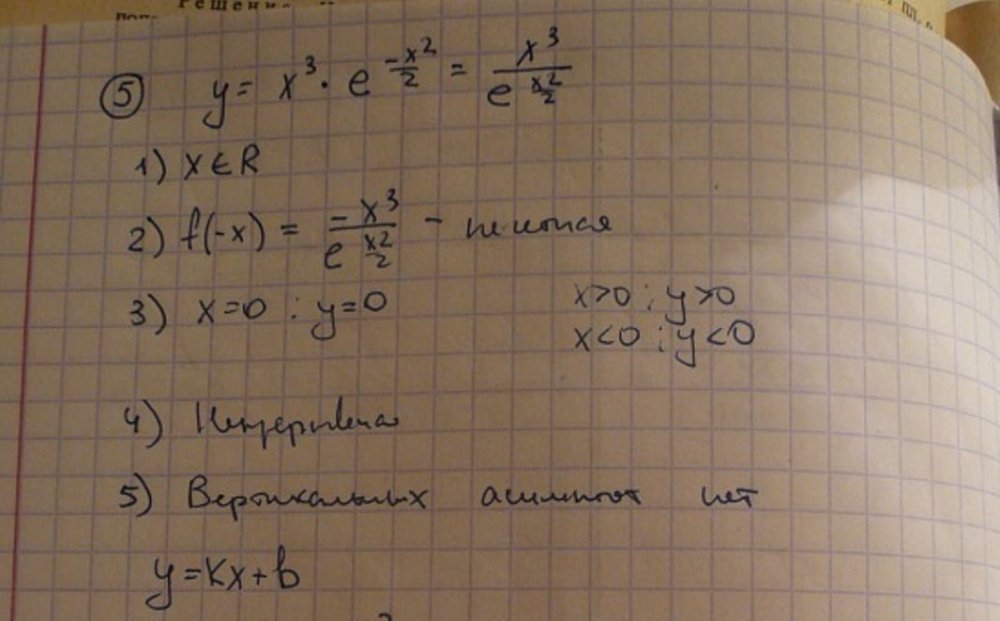 Решение
⑤ y = x³ · e^(-x²/2) = x³/e^(x²/2)
1) x ∈ R
2) f(-x) = -x³/e^(x²/2) - нечетная
3) x=0 : y=0 x>0 ; y>0
x<0 ; y<0
4) Непрерывная
5) Вертикальных асимптот нет
y = kx + b